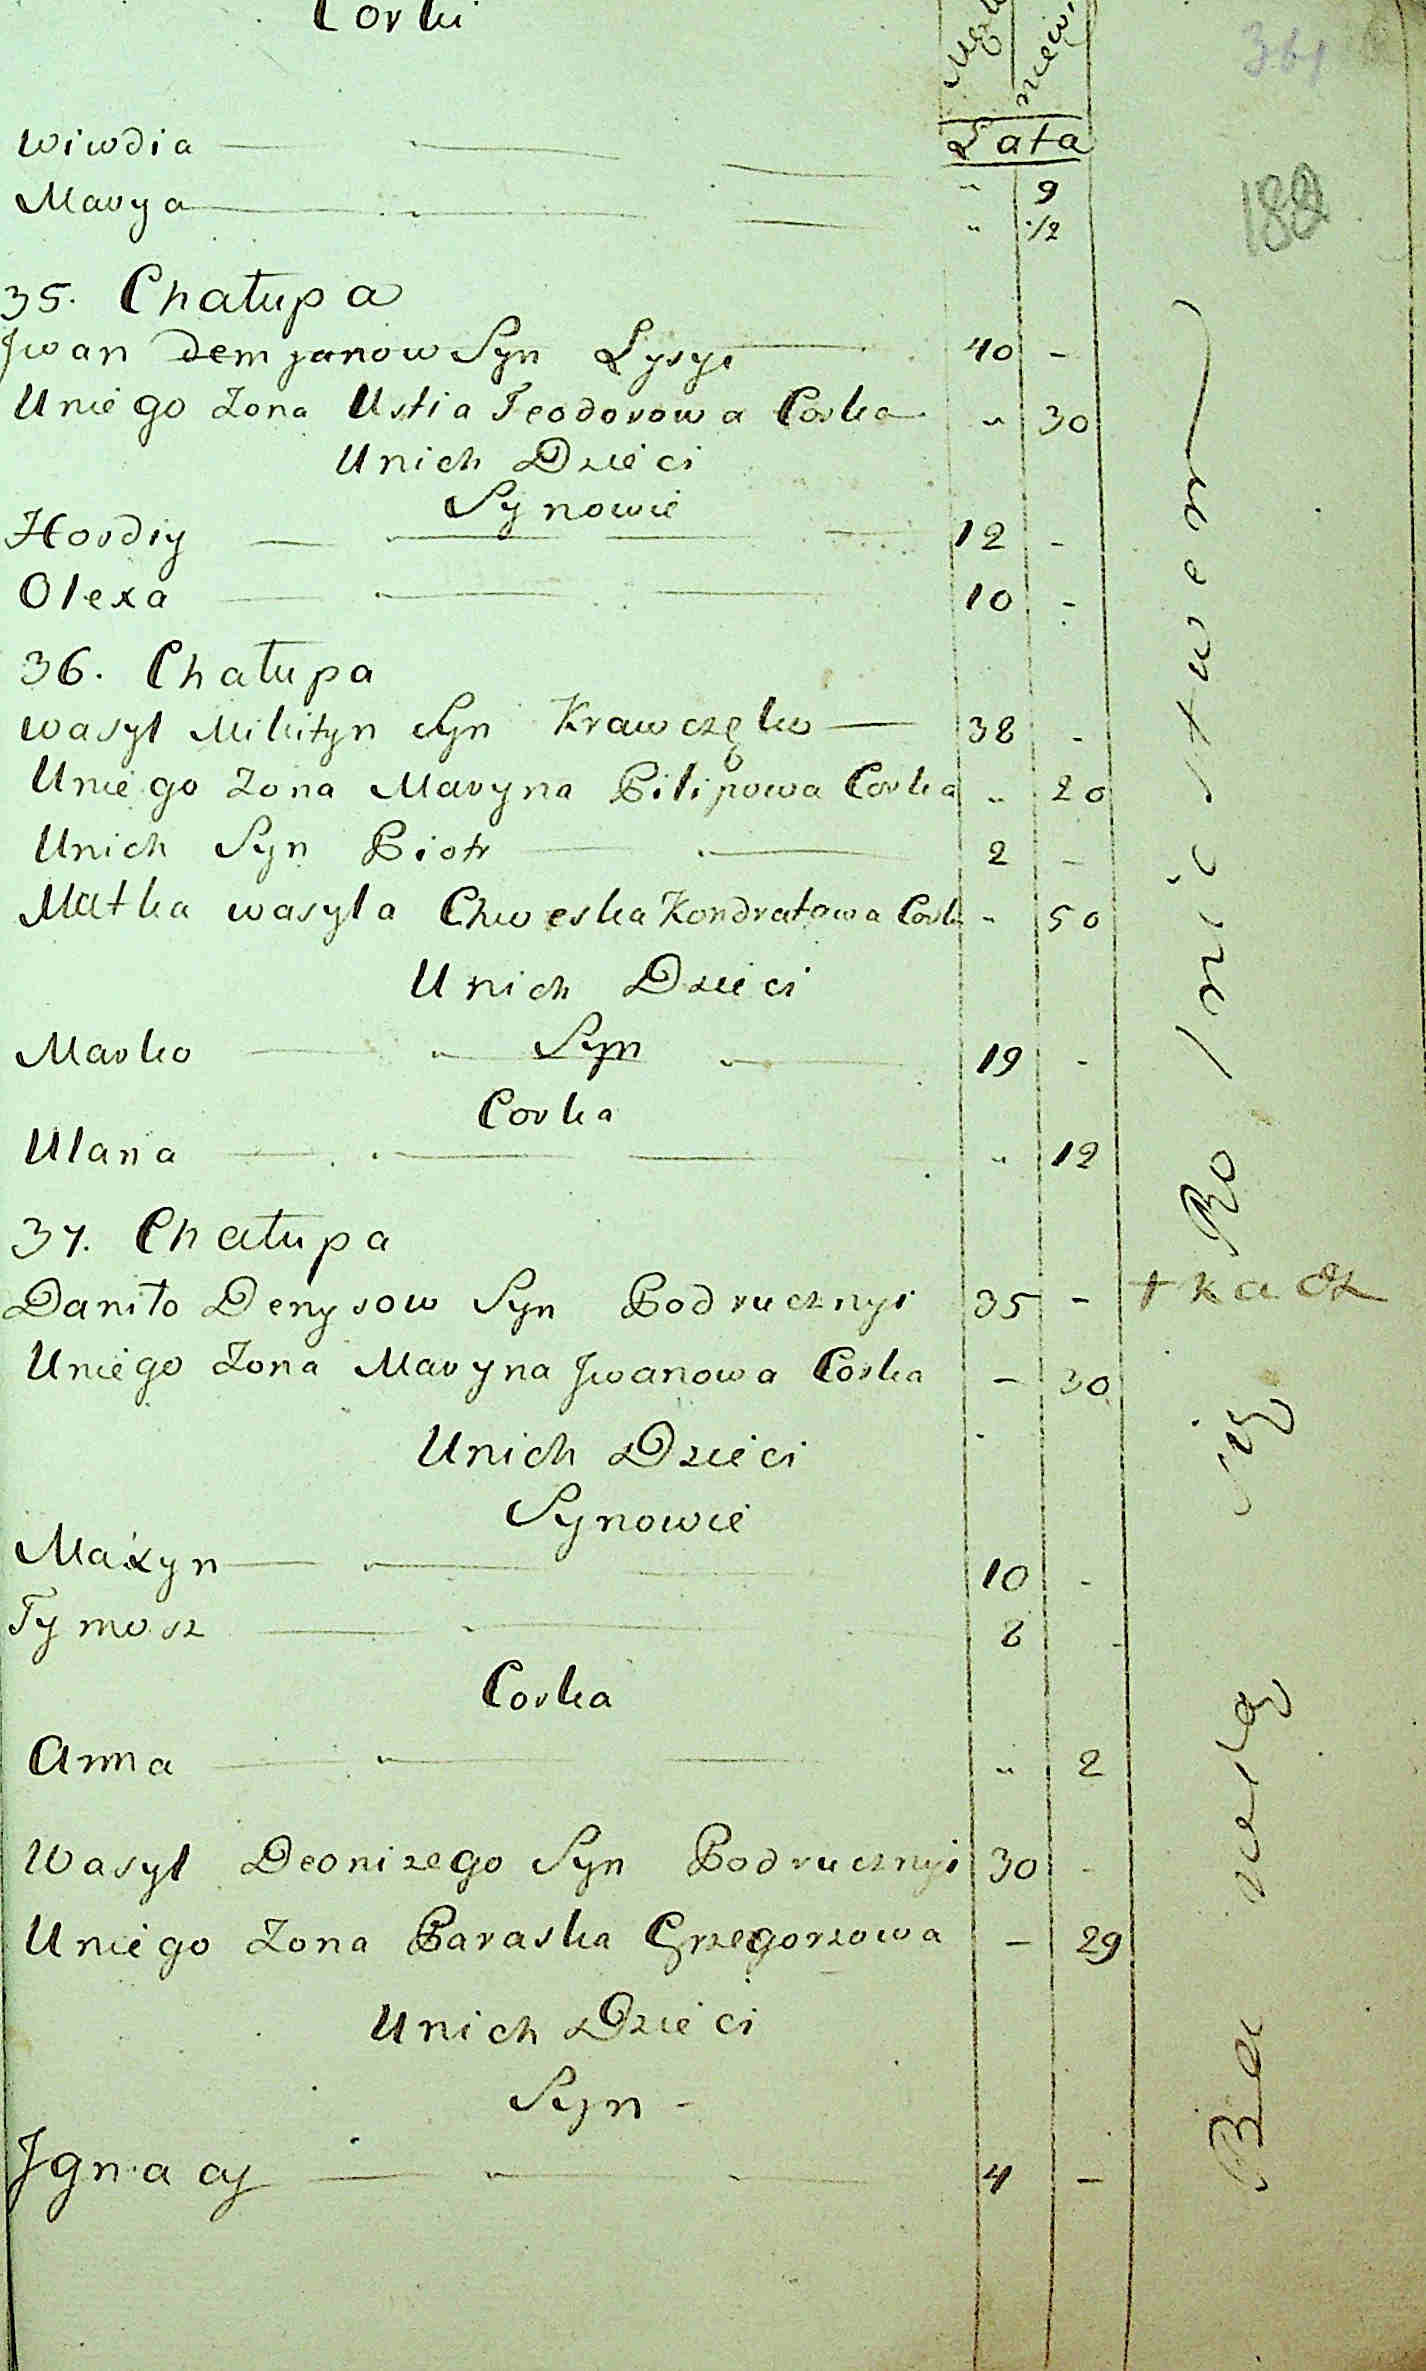 Corki
Męż. niew.
Lata
Wiwdia — " 9
Marya — " 1/2
35. Chałupa
Jwan Demjanow Syn Łysyi — 40 -
Uniego Zona Ustia Teodorowa Corka " 30
Unich Dzieci
Synowie
Hordiy — 12 -
Olexa — 10 -
36. Chałupa
Wasyl Mikityn Syn Krawczęko — 38 -
Uniego Zona Maryna Pilipowa Corka " 20
Unich Syn Piotr — 2 -
Matka Wasyla Chweska Kondratowa Cork " 50
Unich Dzieci
Syn
Marko — 19 -
Corka
Ulana — " 12
37. Chałupa
Daniło Denysow Syn Podrucznyi 35 - tkacz
Uniego Zona Maryna Jwanowa Corka - 30
Unich Dzieci
Synowie
Maxyn — 10 -
Tymosz — 8 -
Corka
Anna — " 2
Wasyl Deonizego Syn Podrucznyi 30 -
Uniego Zona Paraska Grzegorzowa - 29
Unich Dzieci
Syn -
Jgnacy — 4 -
Ro/nictwem
się
188